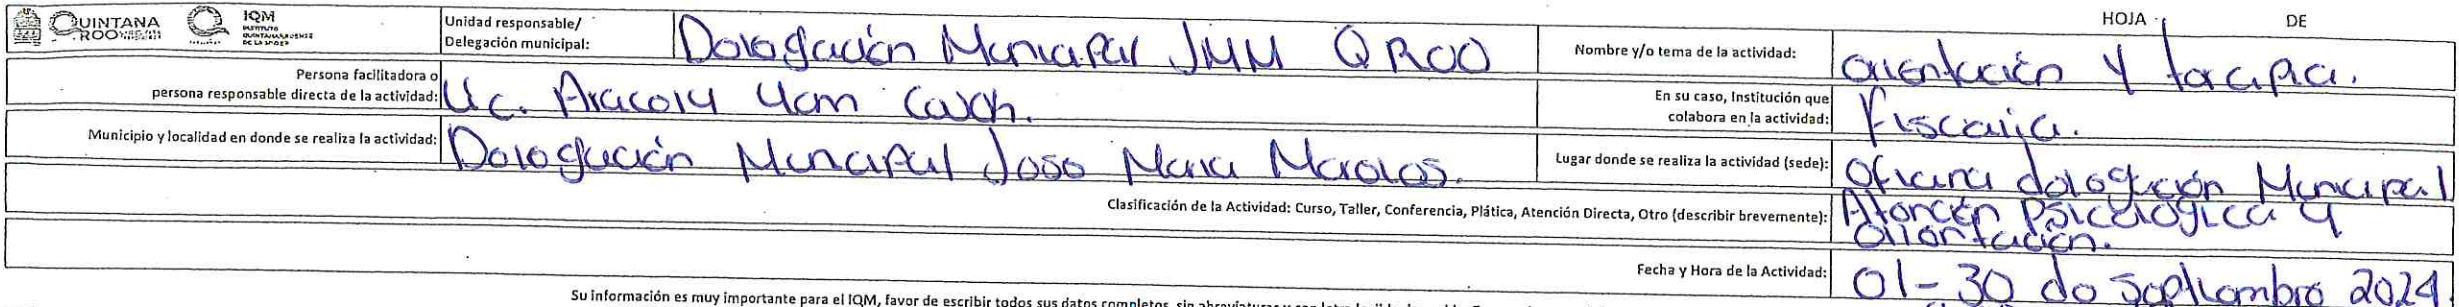 QUINTANA ROO
IQM
INSTITUTO QUINTANARROENSE DE LA MUJER
HOJA DE
Unidad responsable/ Delegación municipal: Delegación Municipal JMM QROO
Nombre y/o tema de la actividad: orientación y terapia.
Persona facilitadora o persona responsable directa de la actividad: Lic. Aracely Uam Cauch.
En su caso, Institución que colabora en la actividad: Fiscalía.
Municipio y localidad en donde se realiza la actividad: Delegación Municipal Jose Maria Morelos.
Lugar donde se realiza la actividad (sede): Oficina delegación Municipal
Clasificación de la Actividad: Curso, Taller, Conferencia, Plática, Atención Directa, Otro (describir brevemente): Atención Psicologica y orientación.
Fecha y Hora de la Actividad: 01-30 de Septiembre 2024
Su información es muy importante para el IQM, favor de escribir todos sus datos completos, sin abreviaturas y con letra